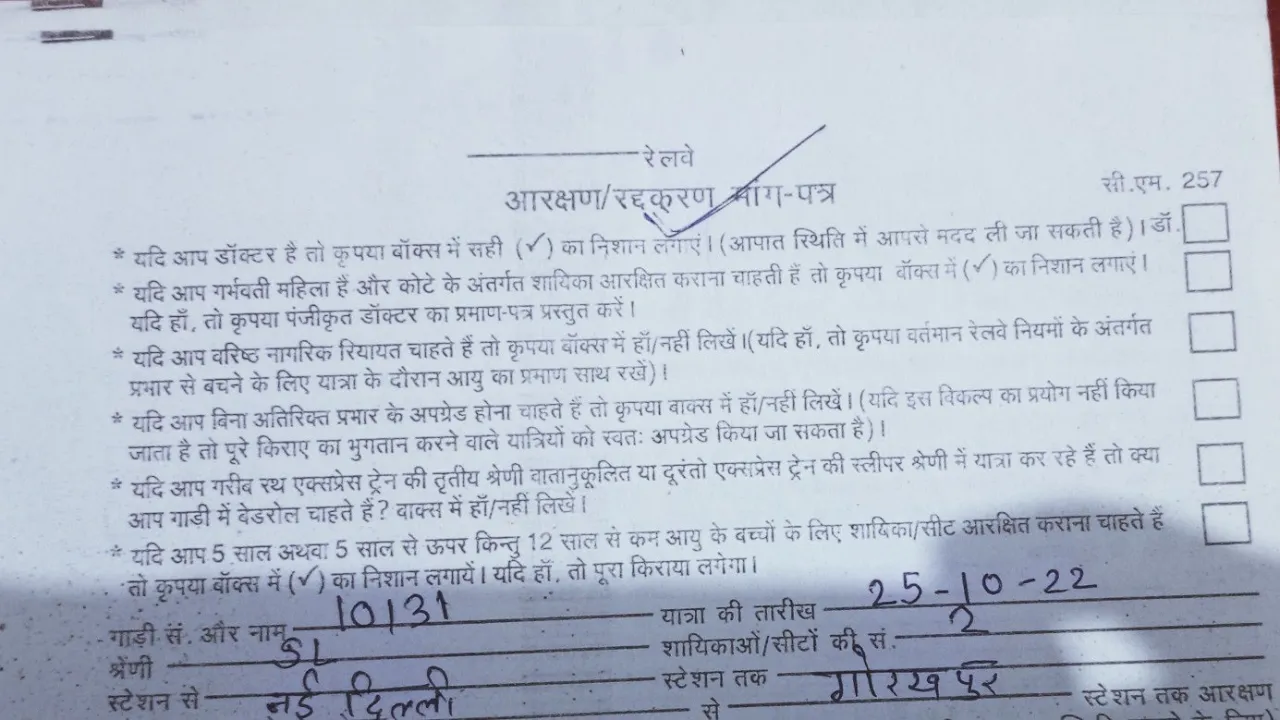 रेलवे
आरक्षण/रद्दकरण मांग-पत्र
सी.एम. 257
* यदि आप डॉक्टर है तो कृपया बॉक्स में सही (✓) का निशान लगाएं। (आपात स्थिति में आपसे मदद ली जा सकती है)। डॉ.
* यदि आप गर्भवती महिला हैं और कोटे के अंतर्गत शायिका आरक्षित कराना चाहती हैं तो कृपया बॉक्स में (✓) का निशान लगाएं।
यदि हाँ, तो कृपया पंजीकृत डॉक्टर का प्रमाण-पत्र प्रस्तुत करें।
* यदि आप वरिष्ठ नागरिक रियायत चाहते हैं तो कृपया बॉक्स में हाँ/नहीं लिखें।(यदि हाँ, तो कृपया वर्तमान रेलवे नियमों के अंतर्गत
प्रभार से बचने के लिए यात्रा के दौरान आयु का प्रमाण साथ रखें)।
* यदि आप बिना अतिरिक्त प्रभार के अपग्रेड होना चाहते हैं तो कृपया बाक्स में हाँ/नहीं लिखें। (यदि इस विकल्प का प्रयोग नहीं किया
जाता है तो पूरे किराए का भुगतान करने वाले यात्रियों को स्वतः अपग्रेड किया जा सकता है)।
* यदि आप गरीब रथ एक्सप्रेस ट्रेन की तृतीय श्रेणी वातानुकूलित या दूरंतो एक्सप्रेस ट्रेन की स्लीपर श्रेणी में यात्रा कर रहे हैं तो क्या
आप गाड़ी में बेडरोल चाहते हैं? बाक्स में हाँ/नहीं लिखें।
* यदि आप 5 साल अथवा 5 साल से ऊपर किन्तु 12 साल से कम आयु के बच्चों के लिए शायिका/सीट आरक्षित कराना चाहते हैं
तो कृपया बॉक्स में (✓) का निशान लगायें। यदि हाँ, तो पूरा किराया लगेगा।
गाड़ी सं. और नाम 10131 यात्रा की तारीख 25-10-22
श्रेणी SL शायिकाओं/सीटों की सं. 2
स्टेशन से नई दिल्ली स्टेशन तक गोरखपुर स्टेशन तक आरक्षण
से